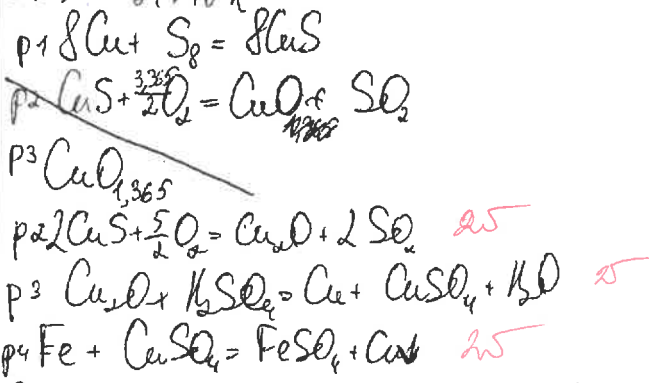 p1 8Cu + S₈ = 8CuS
p2 CuS + 3,365/2 O₂ = CuO + SO₂
p3 CuO₁,₃₆₅
p2 2CuS + 5/2 O₂ = Cu₂O + 2SO₂ 2б
p3 Cu₂O + H₂SO₄ = Cu + CuSO₄ + H₂O 2б
p4 Fe + CuSO₄ = FeSO₄ + Cu 2б